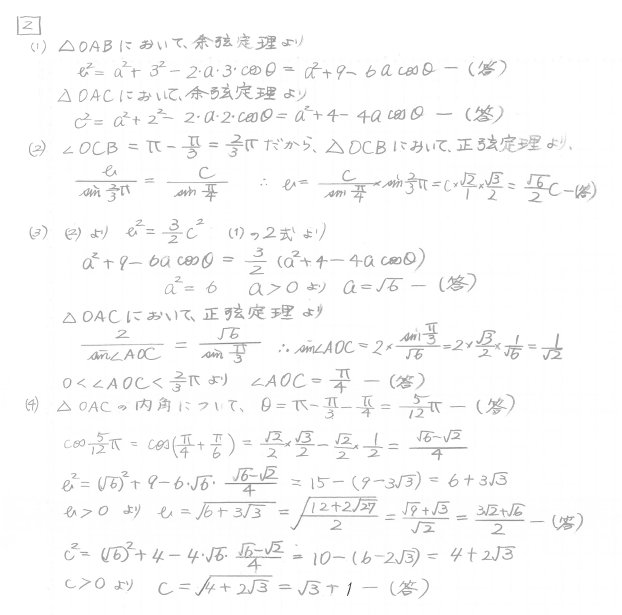 2
(1) △OABにおいて、余弦定理より
b² = a² + 3² − 2・a・3・cosθ = a² + 9 − 6a cosθ — (答)
△OACにおいて、余弦定理より
c² = a² + 2² − 2・a・2・cosθ = a² + 4 − 4a cosθ — (答)
(2) ∠OCB = π − π/3 = 2/3 π だから、△OCBにおいて、正弦定理より、
b/sin 2/3 π = c/sin π/4 ∴ b = c/sin π/4 × sin 2/3 π = c × √2/1 × √3/2 = √6/2 c — (答)
(3) (2)より b² = 3/2 c² (1)の2式より
a² + 9 − 6a cosθ = 3/2 (a² + 4 − 4a cosθ)
a² = 6 a > 0 より a = √6 — (答)
△OACにおいて、正弦定理より
2/sin∠AOC = √6/sin π/3 ∴ sin∠AOC = 2 × sin π/3/√6 = 2 × √3/2 × 1/√6 = 1/√2
0 < ∠AOC < 2/3 π より ∠AOC = π/4 — (答)
(4) △OACの内角について、θ = π − π/3 − π/4 = 5/12 π — (答)
cos 5/12 π = cos(π/4 + π/6) = √2/2 × √3/2 − √2/2 × 1/2 = √6−√2/4
b² = (√6)² + 9 − 6・√6・√6−√2/4 = 15 − (9 − 3√3) = 6 + 3√3
b > 0 より b = √6+3√3 = √12+2√27/2 = √9+√3/√2 = 3√2+√6/2 — (答)
c² = (√6)² + 4 − 4・√6・√6−√2/4 = 10 − (6 − 2√3) = 4 + 2√3
c > 0 より c = √4+2√3 = √3 + 1 — (答)